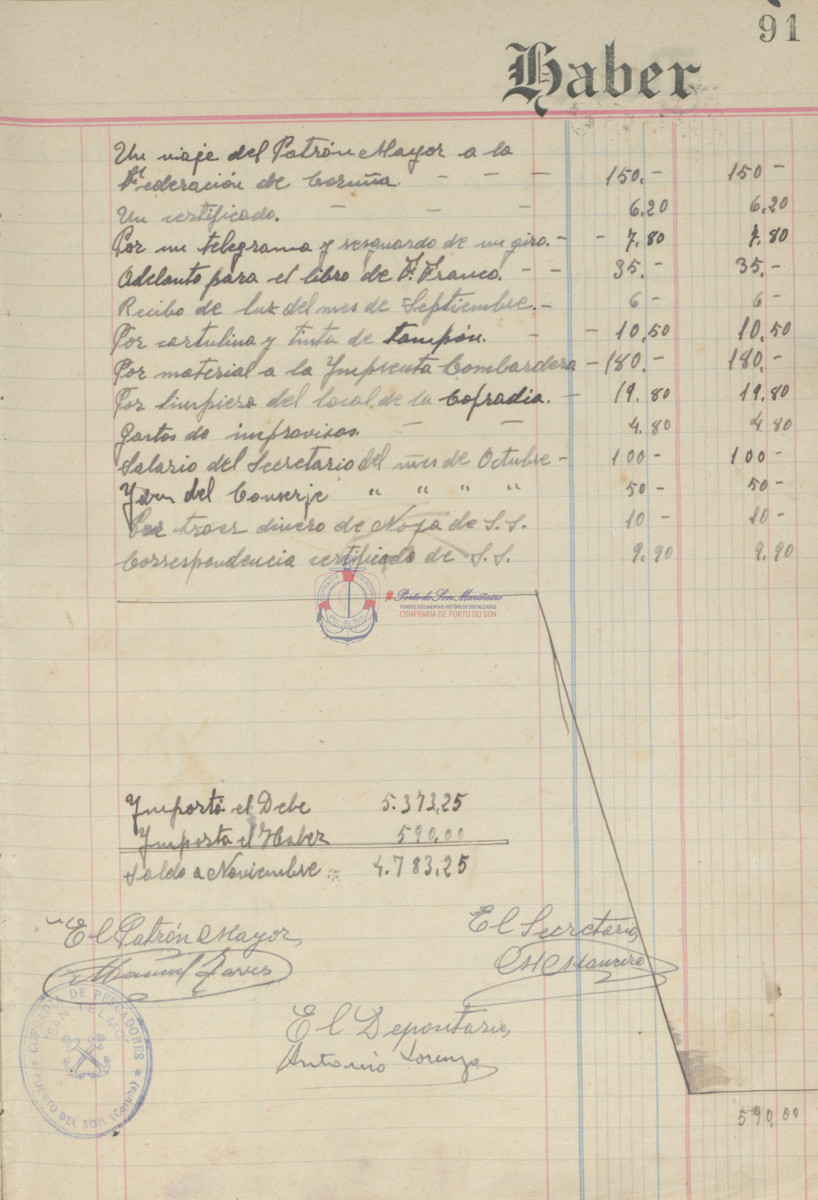 91
Haber
Un viaje del Patrón Mayor a la
Federación de Coruña. - - - 150.- 150 -
Un certificado. - - - 6.20 6.20
Por un telegrama y resguardo de un giro. - - 7.80 7.80
Adelanto para el libro de F. Franco. - - 35.- 35.-
Recibo de luz del mes de Septiembre. - 6 - 6 -
Por cartulina y tinta de tampón. - - 10,50 10,50
Por material a la Imprenta Lombardera - 180.- 180.-
Por limpieza del local de la Cofradia. - 19.80 19.80
Gastos de improvisos. - - 4.80 4.80
Salario del Secretario del mes de Octubre - 100 - 100 -
Idem del Conserje " " " " 50 - 50 -
Por traer dinero de Noya de S.S. 10 - 10 -
Correspondencia certificada de S.S. 9.90 9.90
#Porto do Son Mariñeiro
FONDOS DOCUMENTAIS HISTÓRICOS DIXITALIZADOS
CONFRARÍA DE PORTO DO SON
Importa el Debe 5.373,25
Importa el Haber 590,00
Saldo a Noviembre 4.783,25
El Patrón Mayor,
Manuel
El Secretario,
El Depositario,
Antonio Lorenzo
COFRADIA DE PESCADORES
"SAN TELMO"
PUERTO DEL SON (Coruña)
590,00